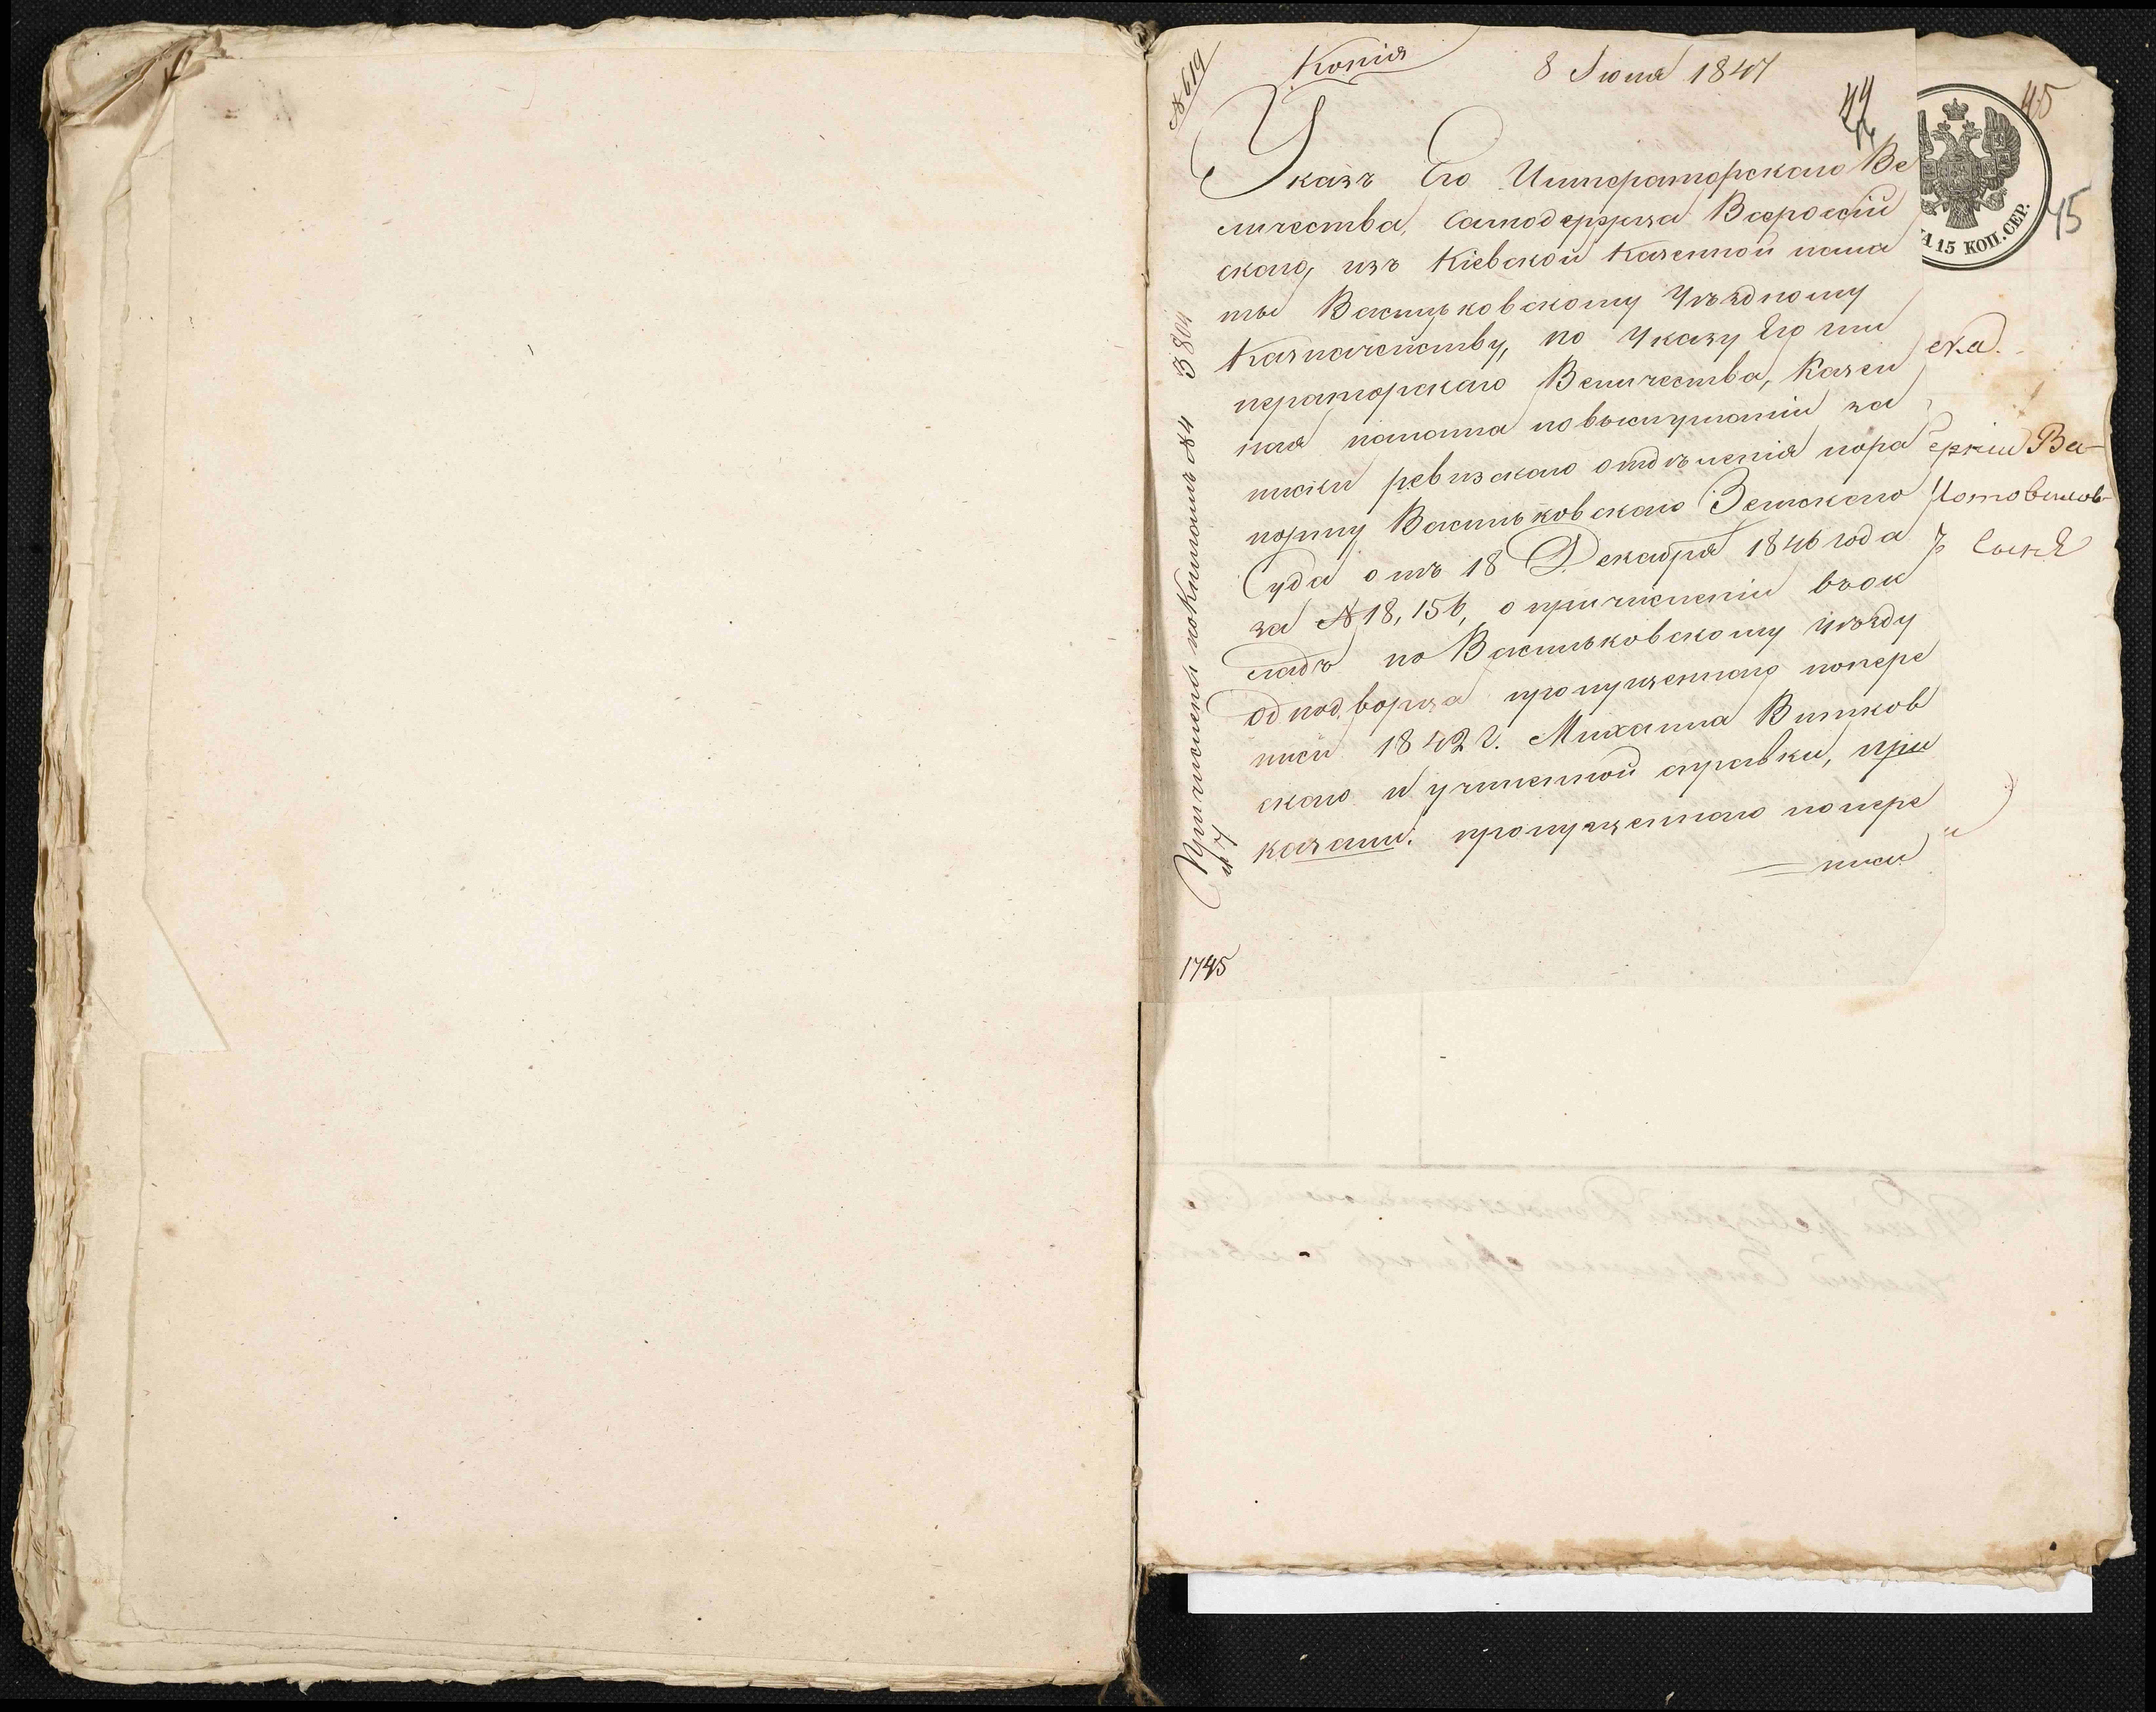 № 619
Копія
8 Іюня 1847
44
45
45
Указъ Его Императорскаго Ве
личества, Самодержца Всероссій
скаго, изъ Кіевской Казенной пала
ты Васильковскому Уѣздному
Казначейству, по Указу Его Им
ператорскаго Величества, Казен
ная палата по выслушаніи за
писки ревизскаго отдѣленія по ра
порту Васильковскаго Земскаго
Суда отъ 18 Декабря 1846 года
за № 18,156, о причисленіи въ ок
ладъ по Васильковскому уѣзду
однодворца пропущеннаго по пере
писи 1842 г. Михаила Витков
скаго и учиненной справки, при
казали: пропущеннаго по пере
писи
Причислены по книгамъ № 4
и 7
3804
1745
А 15 КОП. СЕР.
ска.
Ва-